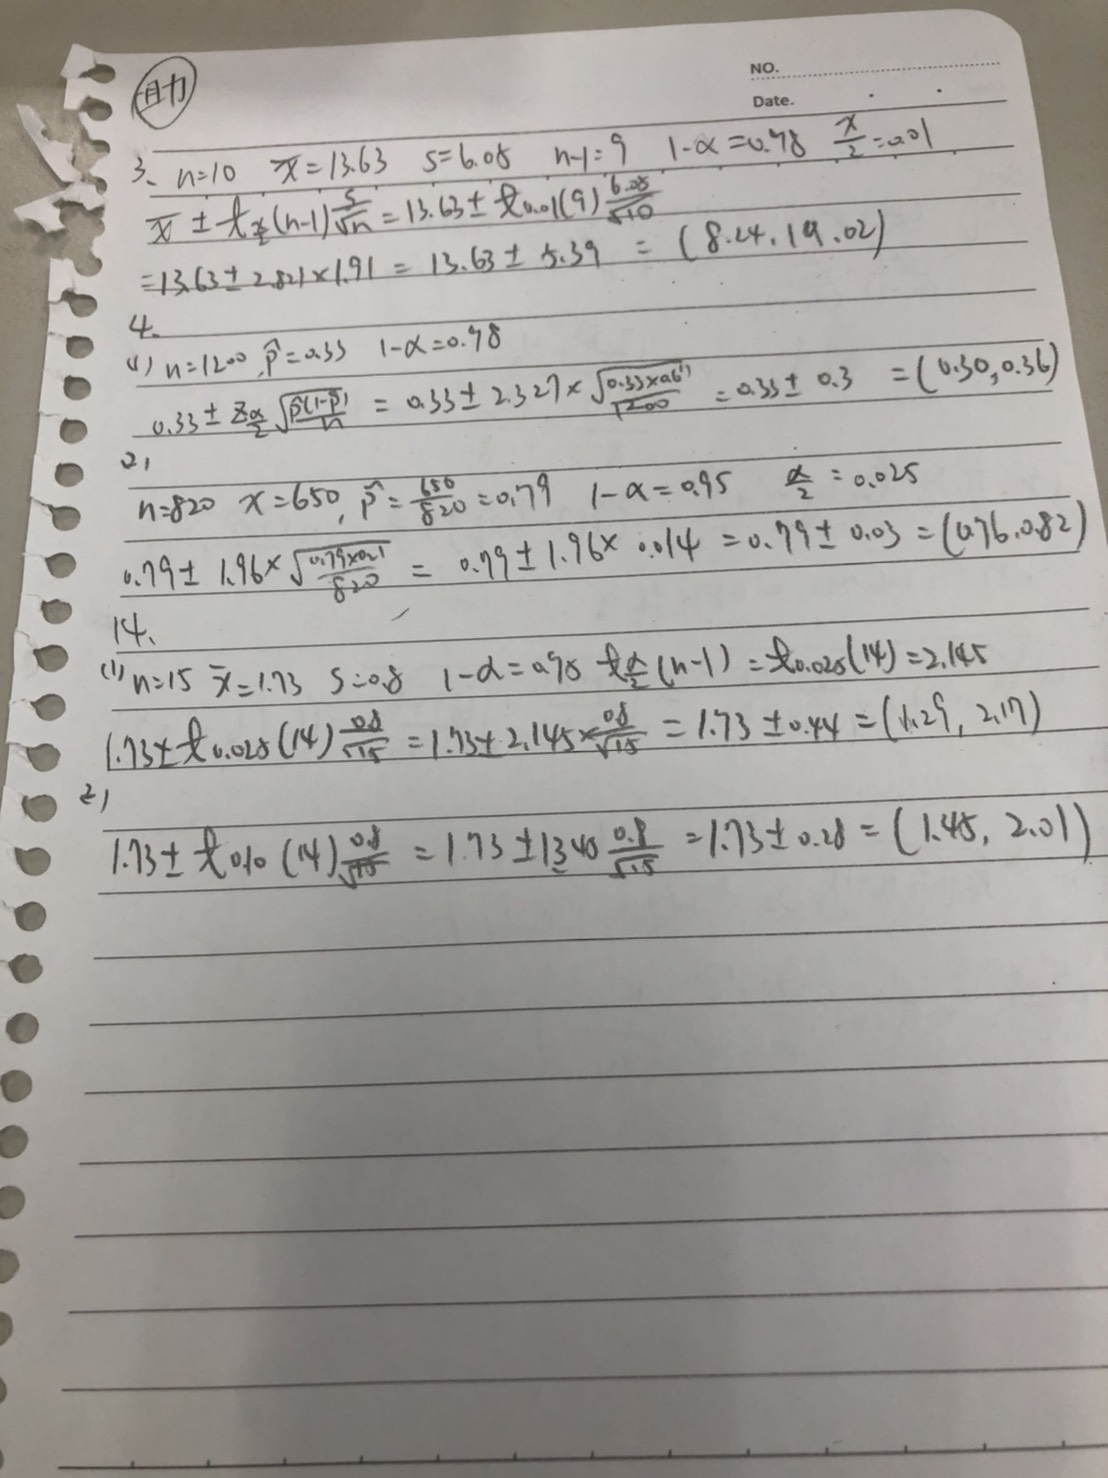 自力
NO.
Date.
3、 n=10 x̄=13.63 S=6.05 n-1=9 1-α=0.98 α/2=0.01
x̄ ± t α/2 (n-1) S/√n = 13.63 ± t0.01(9) 6.05/√10
=13.63 ± 2.821×1.91 = 13.63 ± 5.39 = (8.24, 19.02)
4.
(1) n=1200, p̂=0.33 1-α=0.98
0.33 ± Zα/2 √p̂(1-p̂)/n = 0.33 ± 2.327 × √0.33×0.67/1200 = 0.33 ± 0.3 = (0.30, 0.36)
2)
n=820 x=650, p̂ = 650/820 =0.79 1-α=0.95 α/2 = 0.025
0.79 ± 1.96 × √0.79×0.21/820 = 0.79 ± 1.96 × 0.014 = 0.79 ± 0.03 = (0.76, 0.82)
14、
(1) n=15 x̄=1.73 S=0.8 1-α=0.95 t α/2 (n-1) = t0.025(14) = 2.145
1.73 ± t0.025(14) 0.8/√15 = 1.73 ± 2.145 × 0.8/√15 = 1.73 ± 0.44 = (1.29, 2.17)
2)
1.73 ± t0.10 (14) 0.8/√15 = 1.73 ± 1.345 0.8/√15 = 1.73 ± 0.28 = (1.45, 2.01)